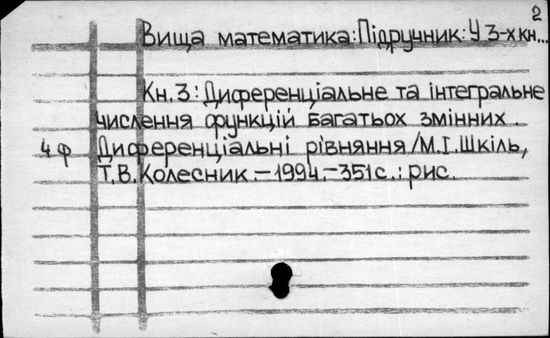 2
Вища математика: Підручник: У 3-х кн...
Кн. 3: Диференціальне та інтегральне
числення функцій багатьох змінних.
4 ф Диференціальні рівняння / М.І. Шкіль,
Т.В. Колесник. – 1994. – 351 с.: рис.